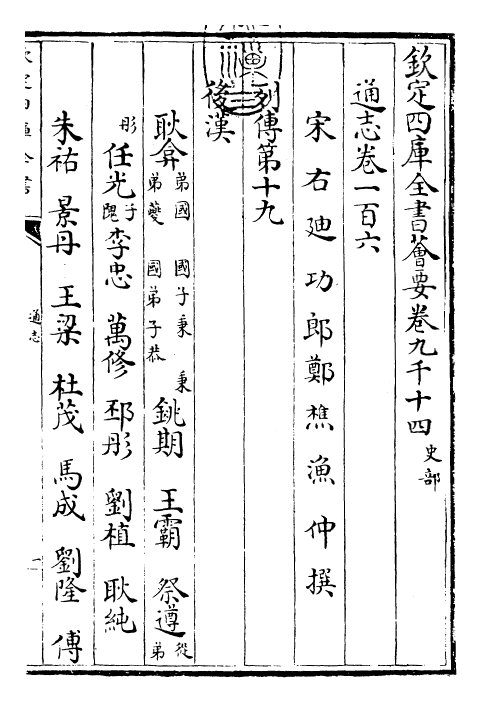 欽定四庫全書薈要卷九千十四 史部
通志卷一百六
宋右廸功郎鄭樵漁仲撰
列傳第十九
後漢
耿弇 弟國 國子秉 秉弟夔 國弟子恭 銚期 王霸 祭遵 從弟
肜 任光 子隗 李忠 萬修 邳彤 劉植 耿純
朱祐 景丹 王梁 杜茂 馬成 劉隆 傅
通志
一